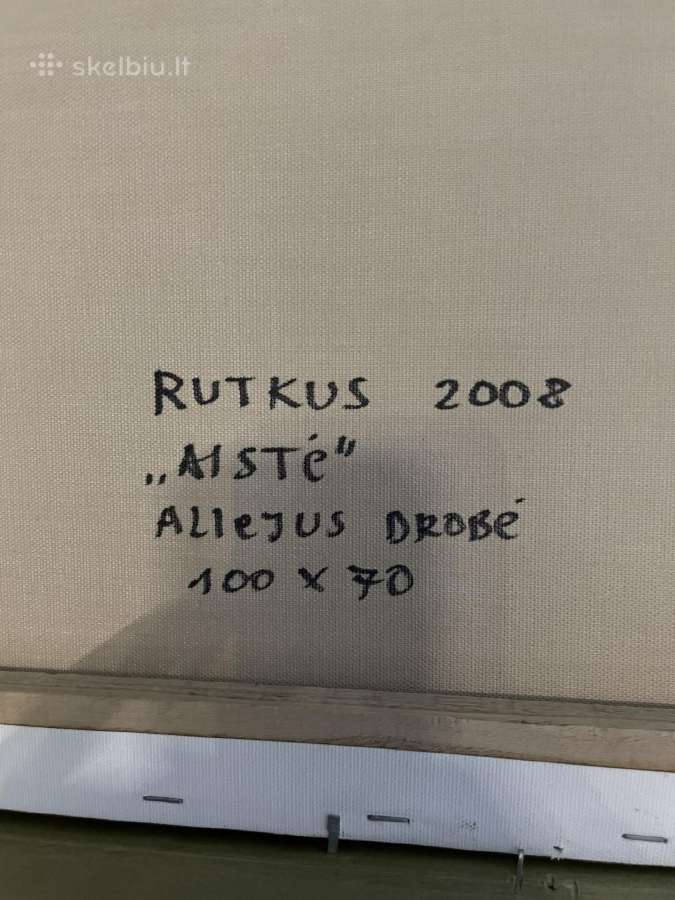 skelbiu.lt
RUTKUS 2008
„AISTė"
AlIeJUS DROBė
100 x 70